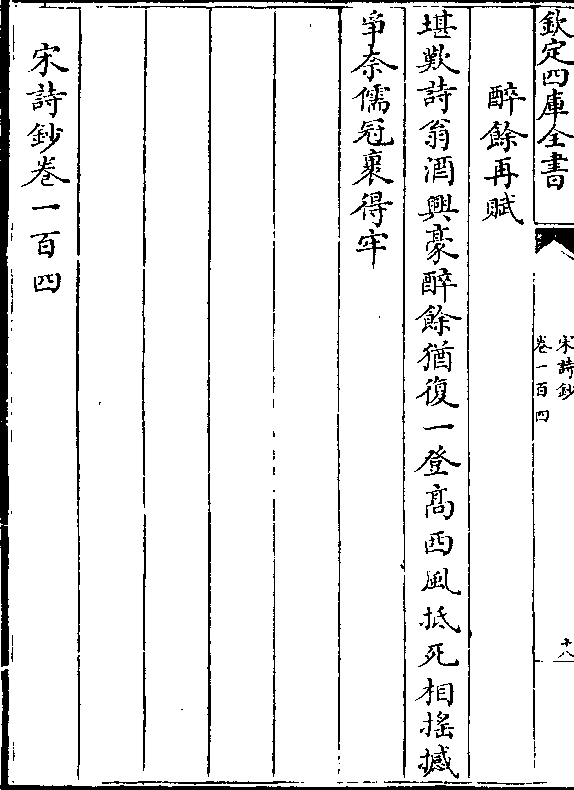 欽定四庫全書
宋詩鈔
卷一百四
十八
醉餘再賦
堪歎詩翁酒興豪醉餘猶復一登髙西風抵死相搖撼
爭奈儒冠裹得牢
宋詩鈔卷一百四